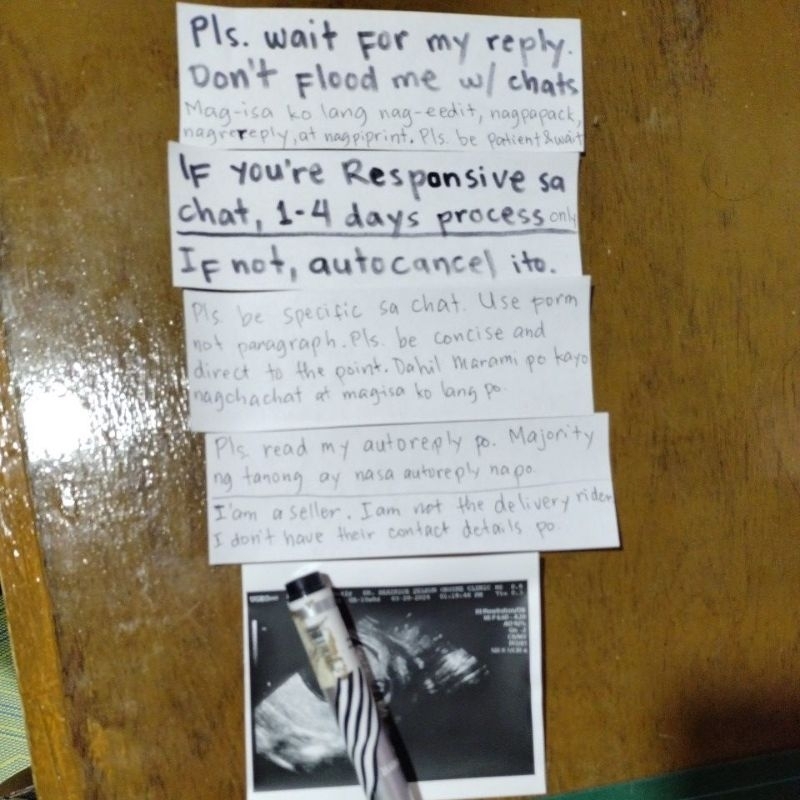 Pls. wait for my reply.
Don't flood me w/ chats
Mag-isa ko lang nag-eedit, nagpapack,
nagrereply, at nagpiprint. Pls. be patient & wait
IF you're Responsive sa
chat, 1-4 days process only
IF not, autocancel ito.
Pls. be specific sa chat. Use form
not paragraph. Pls. be concise and
direct to the point. Dahil marami po kayo
nagchachat at magisa ko lang po.
Pls. read my autoreply po. Majority
ng tanong ay nasa autoreply na po.
I'am a seller. I am not the delivery rider
I don't have their contact details po